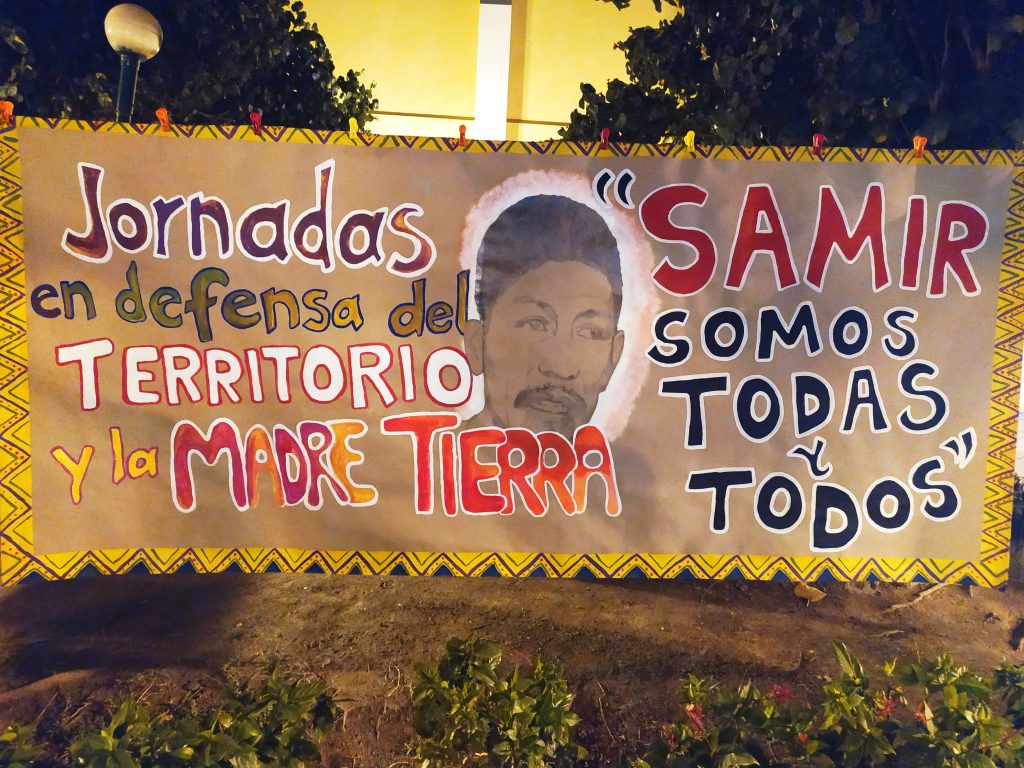 Jornadas
en defensa del
TERRITORIO
y la MADRE TIERRA
"SAMIR
SOMOS
TODAS
Y
TODOS"